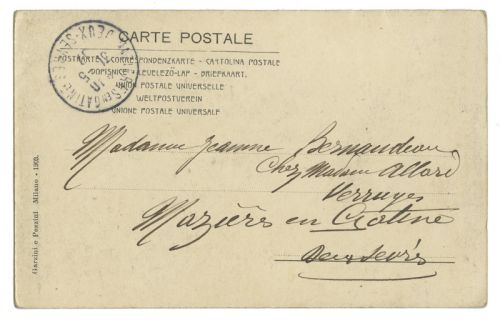 CARTE POSTALE
POSTKARTE - CORRESPONDENZKARTE - CARTOLINA POSTALE
DOPISNICE - LEVELEZÖ-LAP - BRIEFKAART.
UNION POSTALE UNIVERSELLE
WELTPOSTVEREIN
UNIONE POSTALE UNIVERSALE
MAZIERES EN GATINE
DEUX-SEVRES
31
10
05
Madame Jeanne Bernaudeau
Chez Madame Allard
Verruyes
Mazières en Gatine
Deux Sevrès
Garzini e Pezzini Milano - 1905.